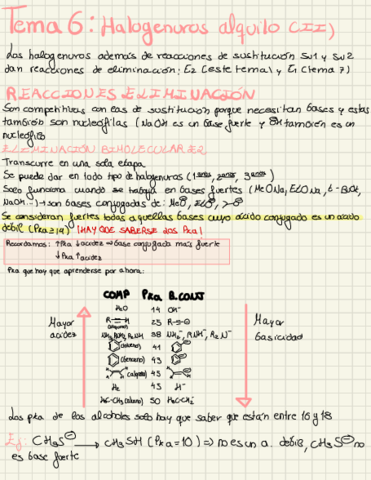 Tema 6: Halogenuros alquilo (II)
Los halogenuros además de reacciones de sustitución SN1 y SN2
dan reacciones de eliminación: E2 (este tema) y E1 (tema 7)
REACCIONES ELIMINACIÓN
Son competitivas con las de sustitución porque necesitan bases y estas
también son nucleófilas (NaOH es un base fuerte y OH también es un
nucleófilo
ELIMINACIÓN BIMOLECULAR E2
Transcurre en una sola etapa
Se puede dar en todo tipo de halogenuros
Solo funciona cuando se trabaja en bases fuertes (MeONa, EtONa, t-BuOK,
NaOH...) → son bases conjugadas de: MeO⊖, EtO⊖,
Se consideran fuertes todas aquellas bases cuyo ácido conjugado es un ácido
débil (Pka≥14) ¡HAY QUE SABERSE los Pka!
Recordamos: ↑Pka ↓acidez ⇒ base conjugada más fuerte
↓Pka ↑acidez
Pka que hay que aprenderse por ahora:
COMP Pka B.CONJ
H2O 14 OH-
R-≡-H 25 R-≡⊖
NH3, RNH2, R2NH 38 NH2-, RNH-, R2N-
(tolueno) 41
(benceno) 43
(alqueno) 45
H2 45 H-
50
Mayor acidez
Mayor basicidad
Los pka de los alcoholes solo hay que saber que están entre 16 y 18
Ej: CH3S⊖ → CH3SH (Pka=10) ⇒ no es un a. débil, CH3S⊖ no
es base fuerte